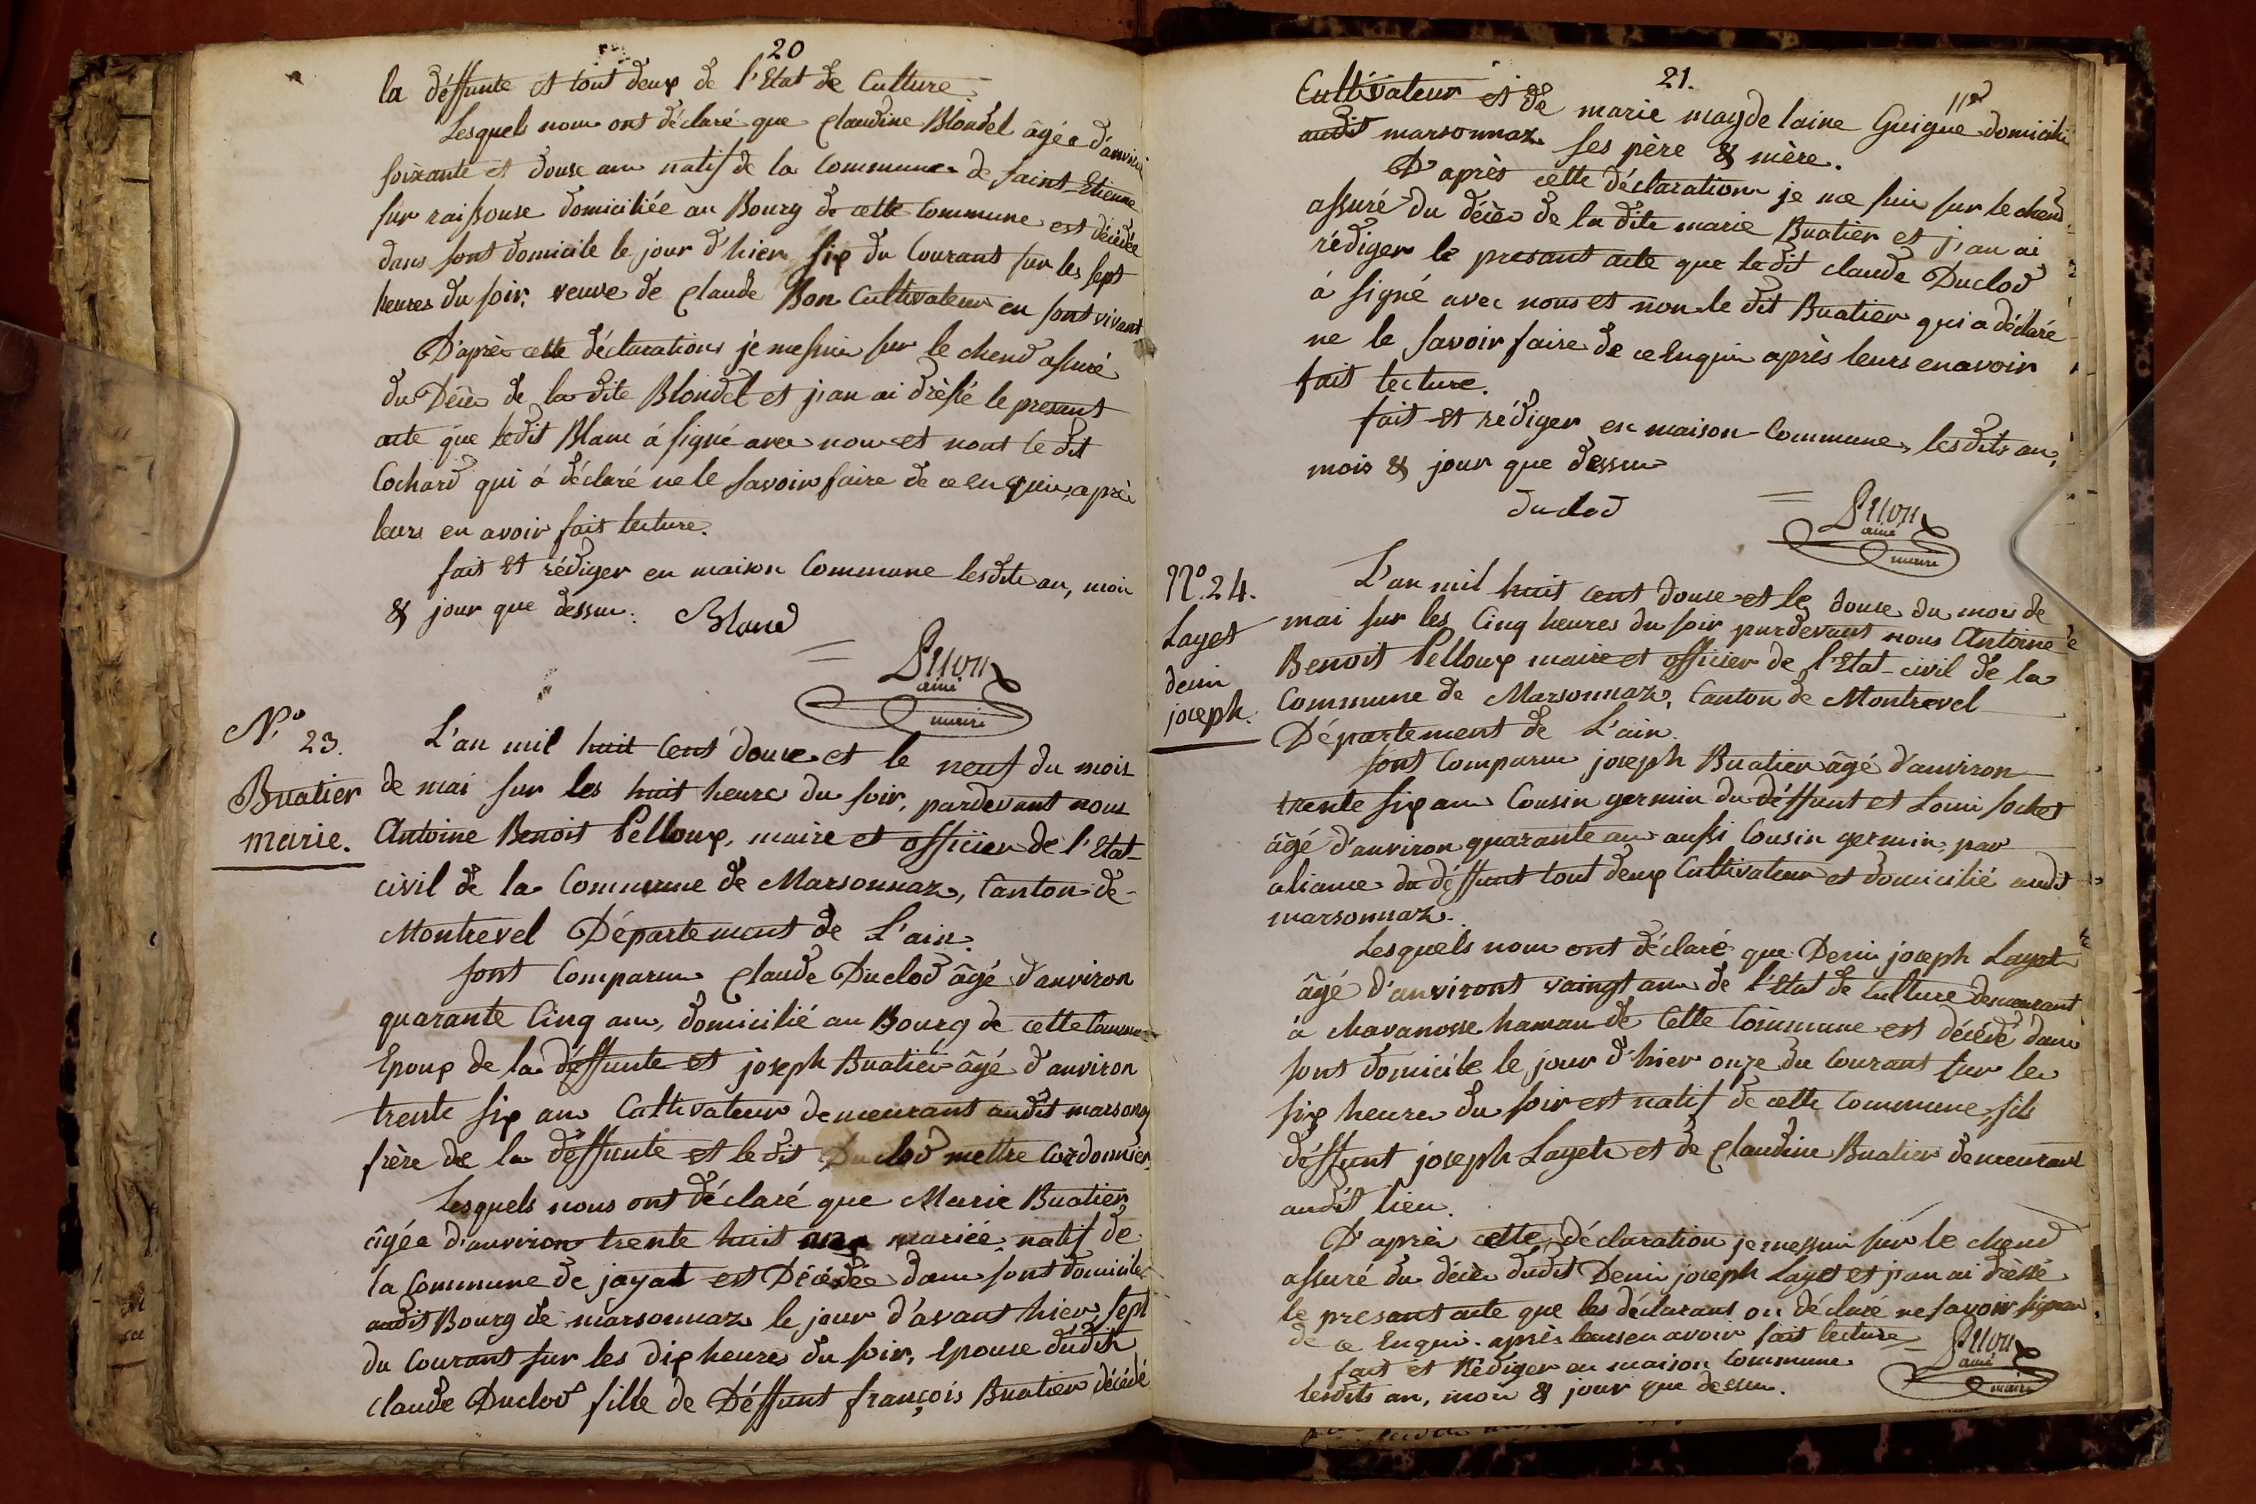 20
la déffunte et tout deux de l'Etat de Culture
Lesquels nous ont déclaré que Claudine Blondel âgée d'anviron
soixante et douse ans natif de la Commune de Saint-Etienne
sur raissouse domiciliée au Bourg de cette Commune est décédée
dans sont domicile le jour d'hier six du Courant sur les sept
heures du soir, veuve de Claude Bon Cultivateur en sont vivant
D'après cette déclaration je me suis sur le chend assuré
du Décès de la dite Blondel et j'an ai drèssé le presant
acte que ledit Blanc à signé avec nous et nont le dit
Cochard qui à déclaré ne le savoir faire de ce enquis, après
leurs en avoir fait lecture.
fait et rédiger en maison Commune lesdits an, mois
& jour que dessus. Bland
ainé
maire
N.º 23.
Buatier
marie.
L'an mil huit Cent douze et le neuf du mois
de mai sur les huit heure du soir, pardevant nous
Antoine Benoit Pelloux, maire et officier de l'Etat-
civil de la Commune de Marsonnaz, Canton de-
Montrevel Département de L'ain.
sont Comparus Claude Duclod âgé d'anviron
quarante Cinq ans, domicilié au Bourg de cette Commune
Epoux de la déffunte et joseph Buatier âgé d'anviron
trente six ans Cultivateur demeurant audit marsonaz
frère de la déffunte et le dit Duclod mettre Cordonnier,
Lesquels nous ont déclaré que Marie Buatier,
âgée d'anviron trente huit ans mariée, natif de
la Commune de jayat est Décédée dans sont domicile
audit Bourg de marsonnaz le jour d'avant hier sept
du Courant sur les dix heures du soir, Epouse dudit
Claude Duclod fille de Déffunt françois Buatier décédé
21.
Cultivateur et de marie magdelaine Guigue domicilié
audit marsonnaz ses père & mère.
D'après cette déclaration je me suis sur le chend
assuré du décès de la dite marie Buatier et j'an ai
rédiger le presant acte que ledit claude Duclod
à signé avec nous et non le dit Buatier qui a déclaré
ne le savoir faire de ce Enquis après leurs en avoir
fait lecture.
fait et rédiger en maison Commune, lesdits an,
mois & jour que dessus
duclod
ainé
maire
N.º 24.
Layet
denis
joseph.
L'an mil huit cent douse et le douse du mois de
mai sur les Cinq heures du soir pardevant nous Antoine
Benoit Pelloux maire et officier de l'Etat-civil de la
Commune de Marsonnaz, Canton de Montrevel
Département de L'ain.
sont Comparus joseph Buatier âgé d'anviron
trente six ans Cousin germin du déffunt et Louis sochet
âgé d'anviron quarante ans aussi Cousin germin, par
aliance du déffunt tout deux Cultivateur et domicilié audit
marsonnaz.
Lesquels nous ont déclaré que Denis joseph Layet
âgé d'anviront vaingt ans de l'Etat de Culture demeurant
à Chavanosse hamau de Cette Commune est décédé dans
sont domicile le jour d'hier onze du Courant sur les
six heures du soir est natif de cette Commune, fils
déffunt joseph Layet et de Claudine Buatier demeurant
audit lieu.
D'après cette déclaration je me suis sur le chend
assuré du décès dudit Denis joseph Layet et j'an ai drèssé
le presant acte que les déclarans on déclaré ne savoir signer
de ce Enquis. après leurs en avoir fait lecture
fait et Rédiger an maison Commune
lesdits an, mois & jour que dessus.
ainé
maire